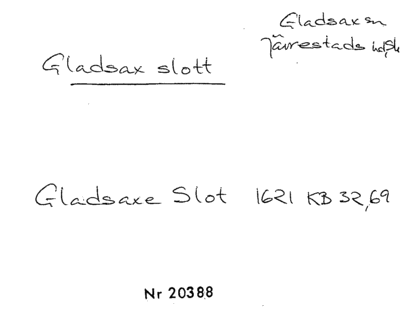 Gladsax sn
Järrestads hd, Sk
Gladsax slott
Gladsaxe Slot 1621 KB 32,69
Nr 20388